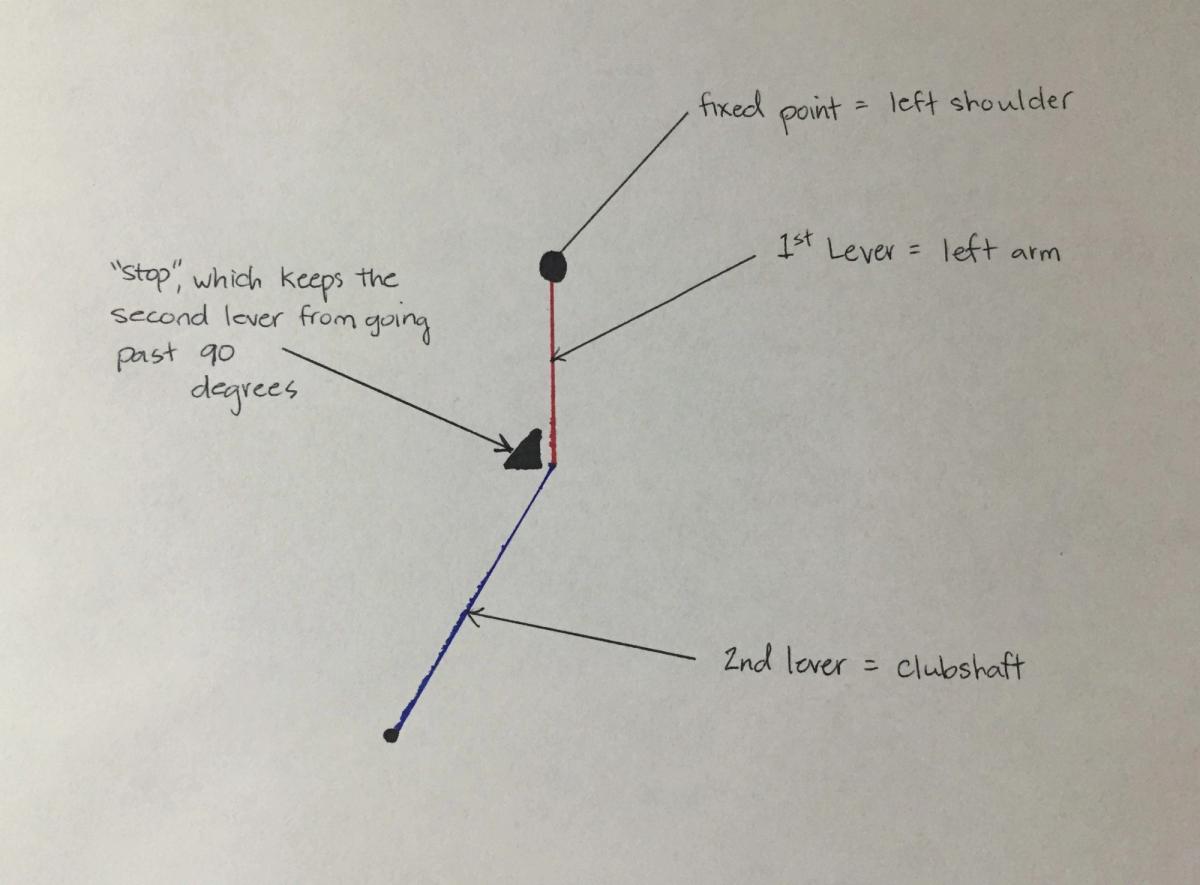 fixed point = left shoulder
1st Lever = left arm
"stop", which keeps the
second lever from going
past 90
degrees
2nd lever = clubshaft